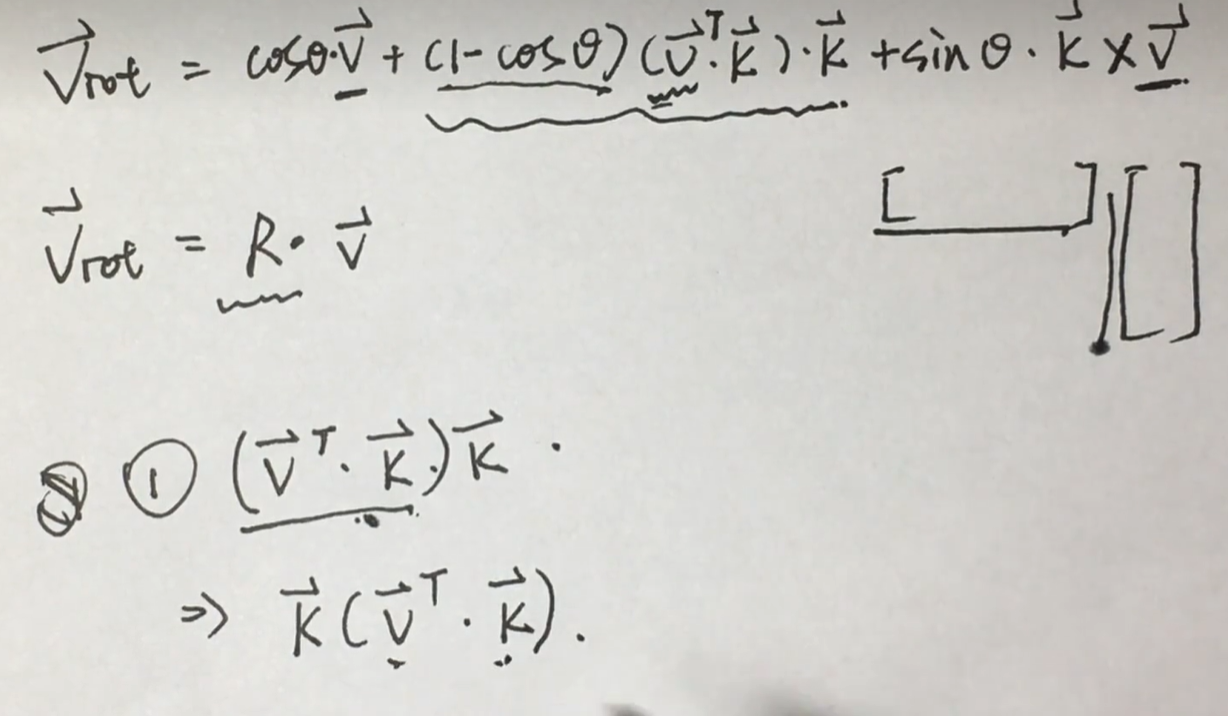 V⃗rot = cosθ·v⃗ + (1-cosθ)(v⃗ᵀ·k⃗)·k⃗ + sinθ·k⃗×v⃗
V⃗rot = R·v⃗
① (v⃗ᵀ·k⃗.)k⃗ .
⇒ k⃗(v⃗ᵀ·k⃗).